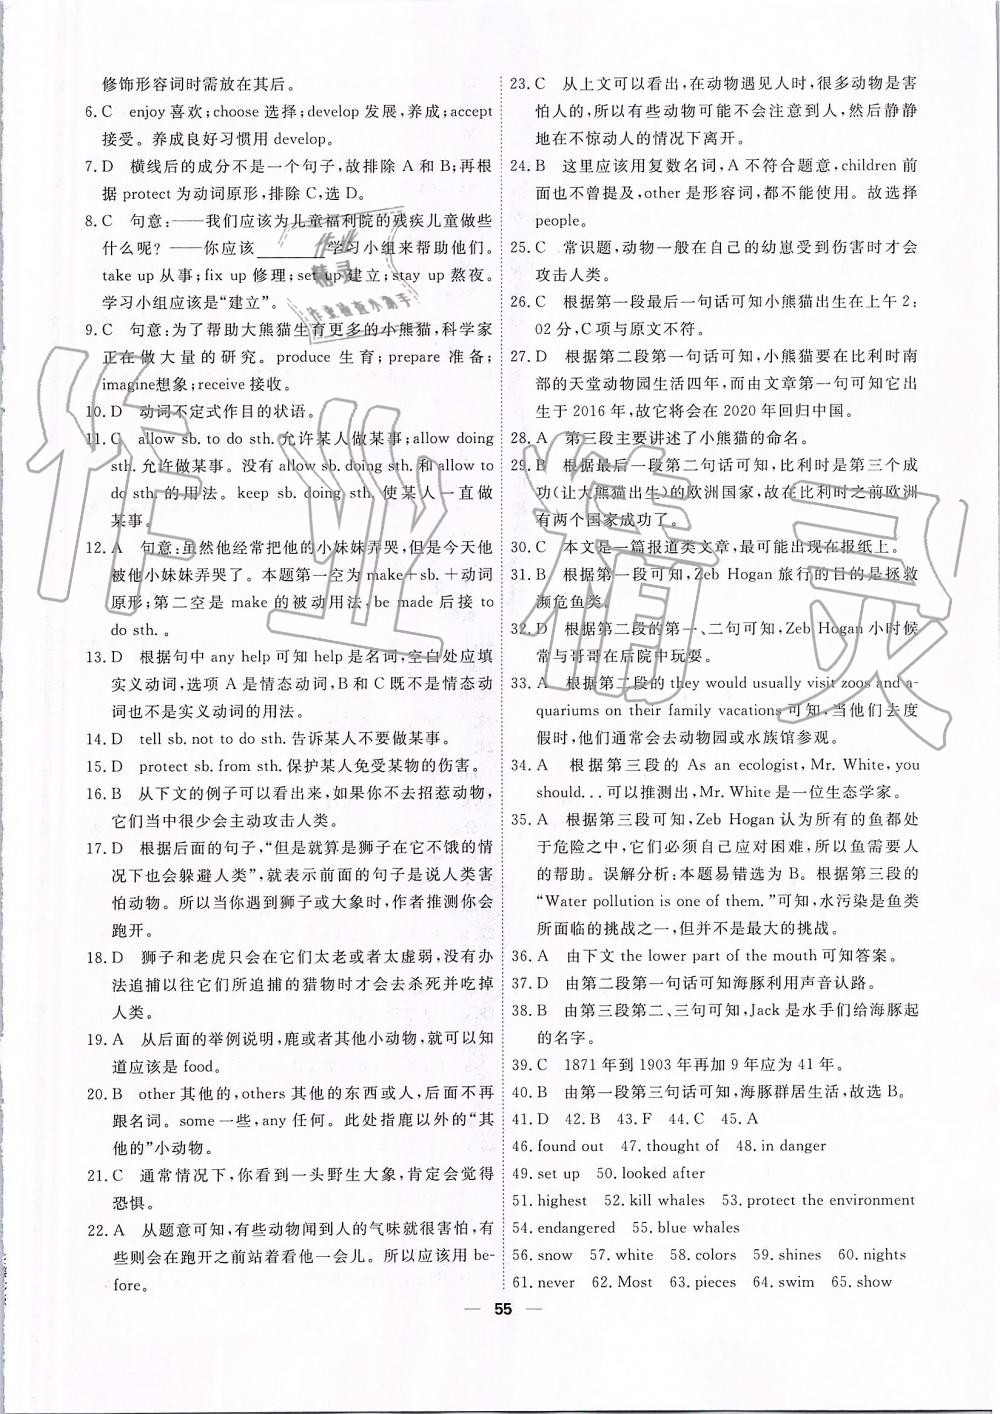 修饰形容词时需放在其后。
6. C enjoy 喜欢;choose 选择;develop 发展,养成;accept
接受。养成良好习惯用 develop。
7. D 横线后的成分不是一个句子,故排除 A 和 B;再根
据 protect 为动词原形,排除 C,选 D。
8. C 句意:——我们应该为儿童福利院的残疾儿童做些
什么呢? ——你应该________学习小组来帮助他们。
take up 从事;fix up 修理;set up 建立;stay up 熬夜。
学习小组应该是“建立”。
9. C 句意:为了帮助大熊猫生育更多的小熊猫,科学家
正在做大量的研究。produce 生育;prepare 准备;
imagine想象;receive 接收。
10. D 动词不定式作目的状语。
11. C allow sb. to do sth. 允许某人做某事;allow doing
sth. 允许做某事。没有 allow sb. doing sth. 和 allow to
do sth. 的用法。keep sb. doing sth. 使某人一直做
某事。
12. A 句意:虽然他经常把他的小妹妹弄哭,但是今天他
被他小妹妹弄哭了。本题第一空为 make+sb.+动词
原形;第二空是 make 的被动用法,be made后接 to
do sth.。
13. D 根据句中 any help 可知 help 是名词,空白处应填
实义动词,选项 A 是情态动词,B 和 C 既不是情态动
词也不是实义动词的用法。
14. D tell sb. not to do sth. 告诉某人不要做某事。
15. D protect sb. from sth. 保护某人免受某物的伤害。
16. B 从下文的例子可以看出来,如果你不去招惹动物,
它们当中很少会主动攻击人类。
17. D 根据后面的句子,“但是就算狮子在它不饿的情
况下也会躲避人类”,就表示前面的句子是说人类害
怕动物。所以当你遇到狮子或大象时,作者推测你会
跑开。
18. D 狮子和老虎只会在它们太老或者太虚弱,没有办
法追捕以往它们所追捕的猎物时才会去杀死并吃掉
人类。
19. A 从后面的举例说明,鹿或者其他小动物,就可以知
道应该是 food。
20. B other 其他的,others 其他的东西或人,后面不再
跟名词。some 一些,any 任何。此处指鹿以外的“其
他的”小动物。
21. C 通常情况下,你看到一头野生大象,肯定会觉得
恐惧。
22. A 从题意可知,有些动物闻到人的气味就很害怕,有
些则在跑开之前站着看他一会儿。所以应该用 be-
fore。
23. C 从上文可以看出,在动物遇见人时,很多动物是害
怕人的,所以有些动物可能不会注意到人,然后静静
地在不惊动人的情况下离开。
24. B 这里应该用复数名词,A 不符合题意,children 前
面也不曾提及,other 是形容词,都不能选。故选择
people。
25. C 常识题,动物一般在自己的幼崽受到伤害时才会
攻击人类。
26. C 根据第一段最后一句话可知小熊猫出生在上午 2:
02 分,C 项与原文不符。
27. D 根据第二段第一句话可知,小熊猫要在比利时南
部的天堂动物园生活四年,而由文章第一句可知它出
生于 2016 年,故它将会在 2020 年回归中国。
28. A 第三段主要讲述了小熊猫的命名。
29. B 根据最后一段第二句话可知,比利时是第三个成
功(让大熊猫出生)的欧洲国家,故在比利时之前欧洲
有两个国家成功了。
30. C 本文是一篇报道类文章,最可能出现在报纸上。
31. B 根据第一段可知,Zeb Hogan 旅行的目的是拯救
濒危鱼类。
32. D 根据第二段的第一、二句可知,Zeb Hogan 小时候
常与哥哥在后院中玩耍。
33. A 根据第二段的 they would usually visit zoos and a-
quariums on their family vacations 可知,当他们去度
假时,他们通常会去动物园或水族馆参观。
34. A 根据第三段的 As an ecologist, Mr. White, you
should...可以推测出,Mr. White 是一位生态学家。
35. A 根据第三段可知,Zeb Hogan 认为所有的鱼都处
于危险之中,它们必须自己应对困难,所以鱼需要人
的帮助。误解分析:本题易错选为 B。根据第三段的
“Water pollution is one of them.”可知,水污染是鱼类
所面临的挑战之一,但并不是最大的挑战。
36. A 由下文 the lower part of the mouth 可知答案。
37. D 由第二段第一句话可知海豚利用声音认路。
38. B 由第三段第二、三句可知,Jack 是水手们给海豚起
的名字。
39. C 1871 年到 1903 年再加 9 年应为 41 年。
40. B 由第一段第三句话可知,海豚群居生活,故选 B。
41. D 42. B 43. F 44. C 45. A
46. found out 47. thought of 48. in danger
49. set up 50. looked after
51. highest 52. kill whales 53. protect the environment
54. endangered 55. blue whales
56. snow 57. white 58. colors 59. shines 60. nights
61. never 62. Most 63. pieces 64. swim 65. show
55
作业精灵
作业
精灵
作业检查小帮手